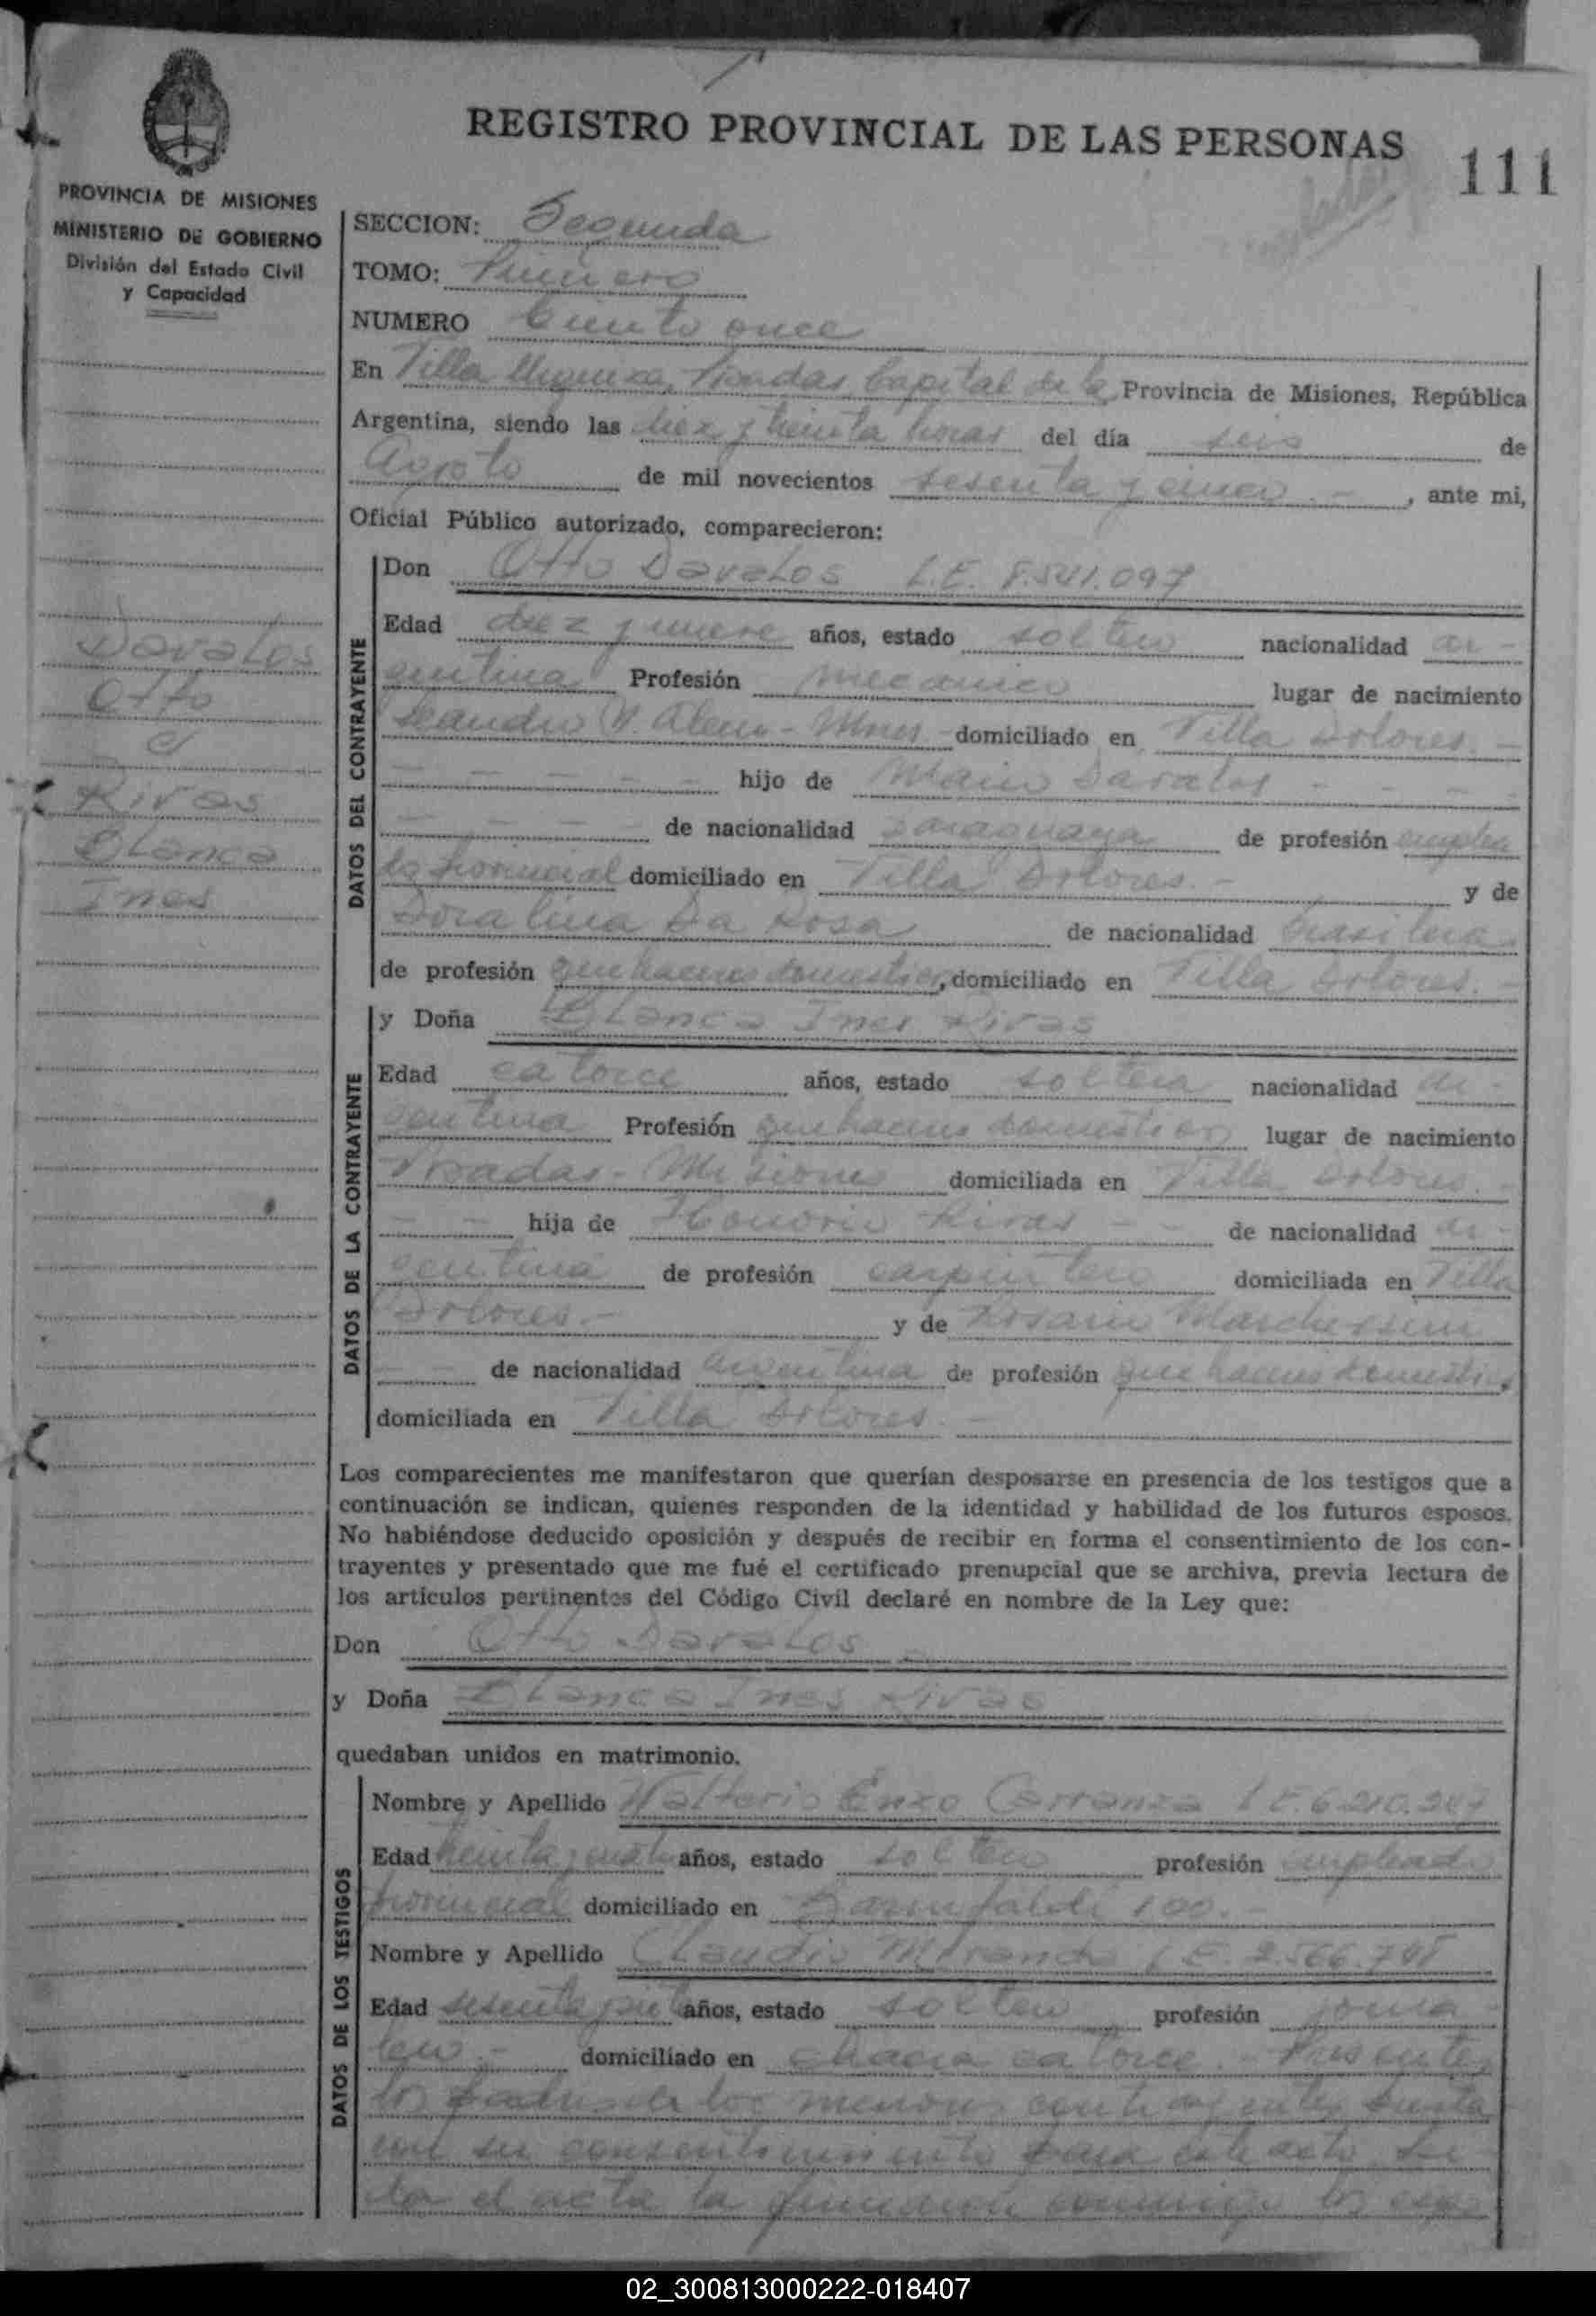 REGISTRO PROVINCIAL DE LAS PERSONAS
111
PROVINCIA DE MISIONES
MINISTERIO DE GOBIERNO
División del Estado Civil
y Capacidad
SECCION: Segunda
TOMO: Primero
NUMERO Ciento once
En Villa Urquiza, Posadas, Capital de la Provincia de Misiones, República
Argentina, siendo las diez y treinta horas del día seis de
Agosto de mil novecientos sesenta y cinco.- , ante mi,
Oficial Público autorizado, comparecieron:
Davalos
Otto
c/
Rivas
Blanca
Ines
DATOS DEL CONTRAYENTE
Don Otto Davalos L.E. 8.541.097
Edad diez y nueve años, estado soltero nacionalidad ar-
gentina Profesión mecanico lugar de nacimiento
Leandro N. Alem - Mnes - domiciliado en Villa Dolores. -
- - - - - hijo de Davalos - - - -
- - - - de nacionalidad paraguaya de profesión emplea
do provincial domiciliado en Villa Dolores. - y de
Doralina Da Rosa de nacionalidad brasilera
de profesión quehaceres domesticos, domiciliado en Villa Dolores. -
DATOS DE LA CONTRAYENTE
y Doña Blanca Ines Rivas
Edad catorce años, estado soltera nacionalidad ar-
gentina Profesión quehaceres domesticos lugar de nacimiento
Posadas - Misiones domiciliada en Villa Dolores. -
- - hija de Honorio Rivas - - de nacionalidad ar-
gentina de profesión carpintero domiciliada en Villa
Dolores. - y de
- - de nacionalidad argentina de profesión quehaceres domesticos,
domiciliada en Villa Dolores. -
Los comparecientes me manifestaron que querían desposarse en presencia de los testigos que a
continuación se indican, quienes responden de la identidad y habilidad de los futuros esposos.
No habiéndose deducido oposición y después de recibir en forma el consentimiento de los con-
trayentes y presentado que me fué el certificado prenupcial que se archiva, previa lectura de
los artículos pertinentes del Código Civil declaré en nombre de la Ley que:
Don Otto Davalos
y Doña Blanca Ines Rivas
quedaban unidos en matrimonio.
DATOS DE LOS TESTIGOS
Nombre y Apellido Walterio Enzo Carranza L.E.
Edad treinta y cuatro años, estado soltero profesión empleado
provincial domiciliado en 100. -
Nombre y Apellido Claudio Miranda L.E. 2.566.
Edad sesenta y siete años, estado soltero profesión jorna-
lero.- domiciliado en chacra catorce. - Presentes
los padres de los menores contrayentes
su consentimiento para este acto. Lei-
da el acta la conmigo los espo
02_300813000222-018407